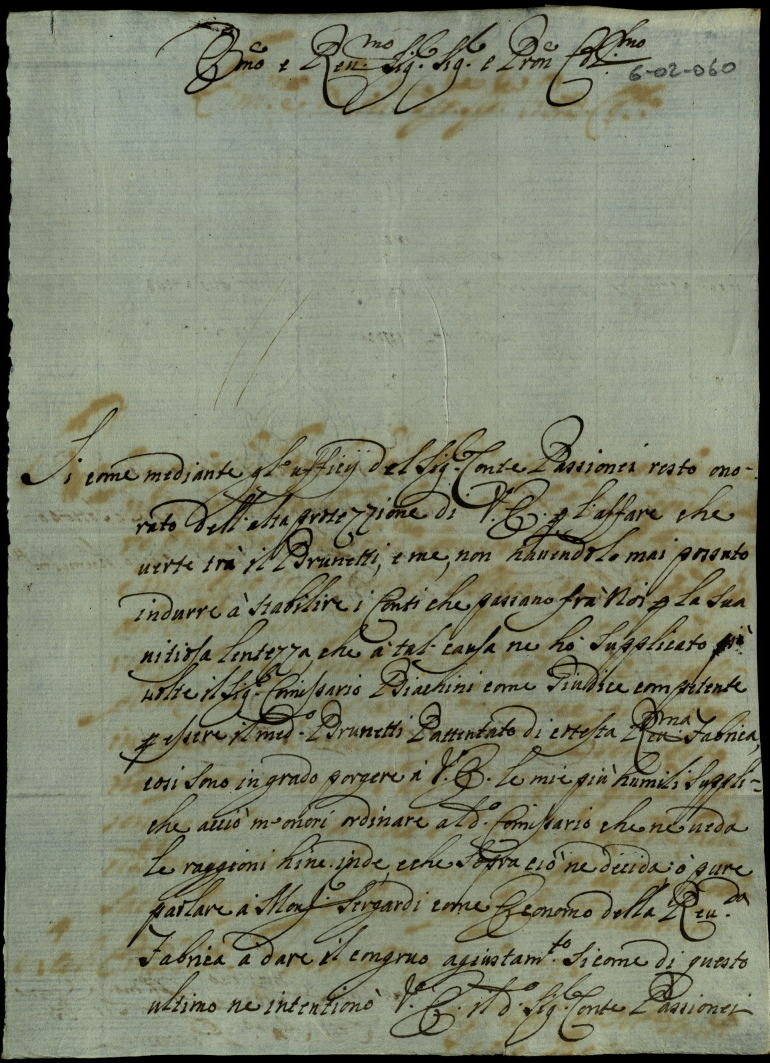 Em̃o e Reu.mo Sig.r Sig.r e Pron̄ Col.mo
6-02-060
Si come mediante gl'ufficij del Sig.r Conte Passionei resto ono-
rato dell'alta protezzione di V.E. p l'affare che
uerte trà il Brunetti, e me, non hauendolo mai possuto
indurre à stabilire i Conti che passano frà Noi p la sua
uitiosa lentezza che à tal causa ne hò supplicato più
uolte il Sig.r Comissario Biachini come Giudice competente
p essere il med.o Brunetti Pattentato di cotesta Reu.ma Fabrica,
cosi sono in grado porgere à V.E. le mie più humili suppli=
che acciò m'onori ordinare al d.o Comissario che ne ueda
le raggioni hinc inde, e che sopra ciò ne decida, ò pure
parlare à Mons.r Sergardi come Economo della Reu.da
Fabrica à dare il congruo agiustam.to sicome di questo
ultimo ne intentionò V.E. il d.o Sig.r Conte Passionei